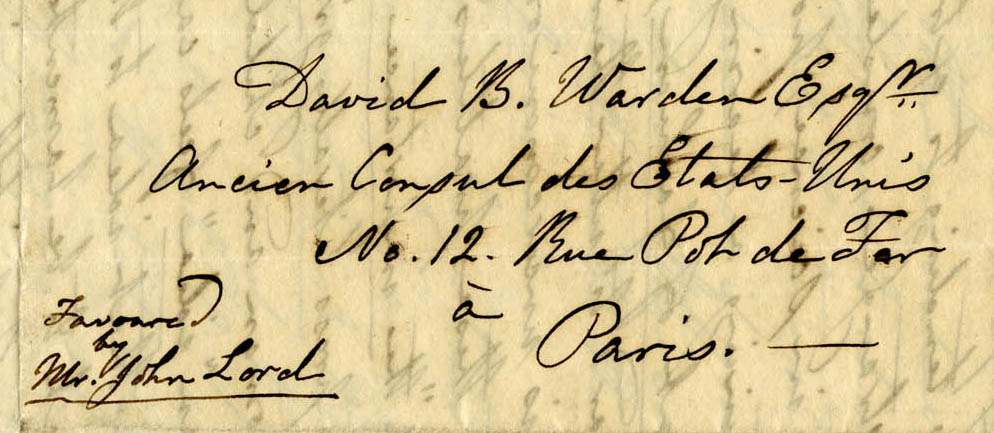 David B. Warden Esqr.
Ancien Consul des Etats-Unis
No. 12. Rue Pot de Fer
à
Paris. —
Favoured
by
Mr. John Lord